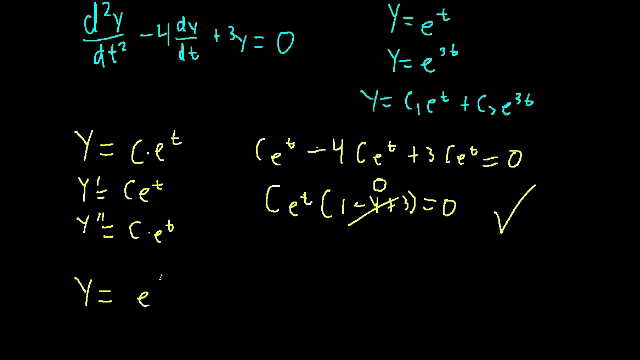 d²y/dt² - 4 dy/dt + 3y = 0
y = e^t
y = e^3t
y = c₁e^t + c₂e^3t
y = c·e^t
y' = ce^t
y'' = c·e^t
ce^t - 4ce^t + 3ce^t = 0
ce^t(1-4+3) = 0 ✓
0
y = e